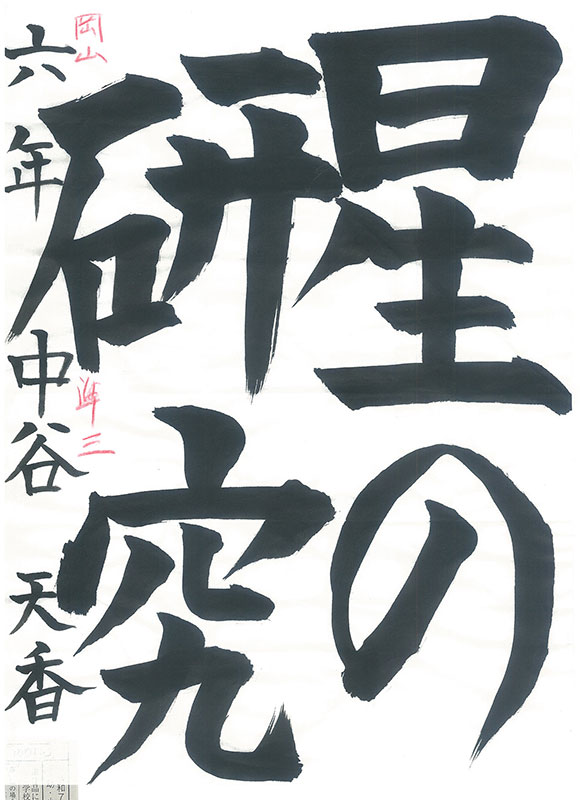 星の
研究
六年 中谷 天香
岡山
準三